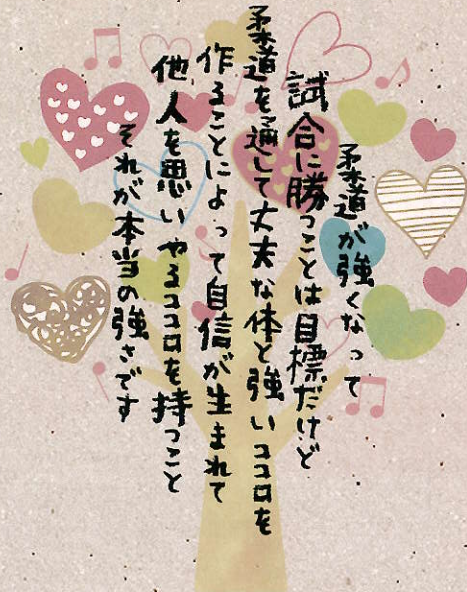 柔道が強くなって
試合に勝つことは目標だけど
柔道を通して丈夫な体と強いココロを
作ることによって自信が生まれて
他人を思いやるココロを持つこと
それが本当の強さです